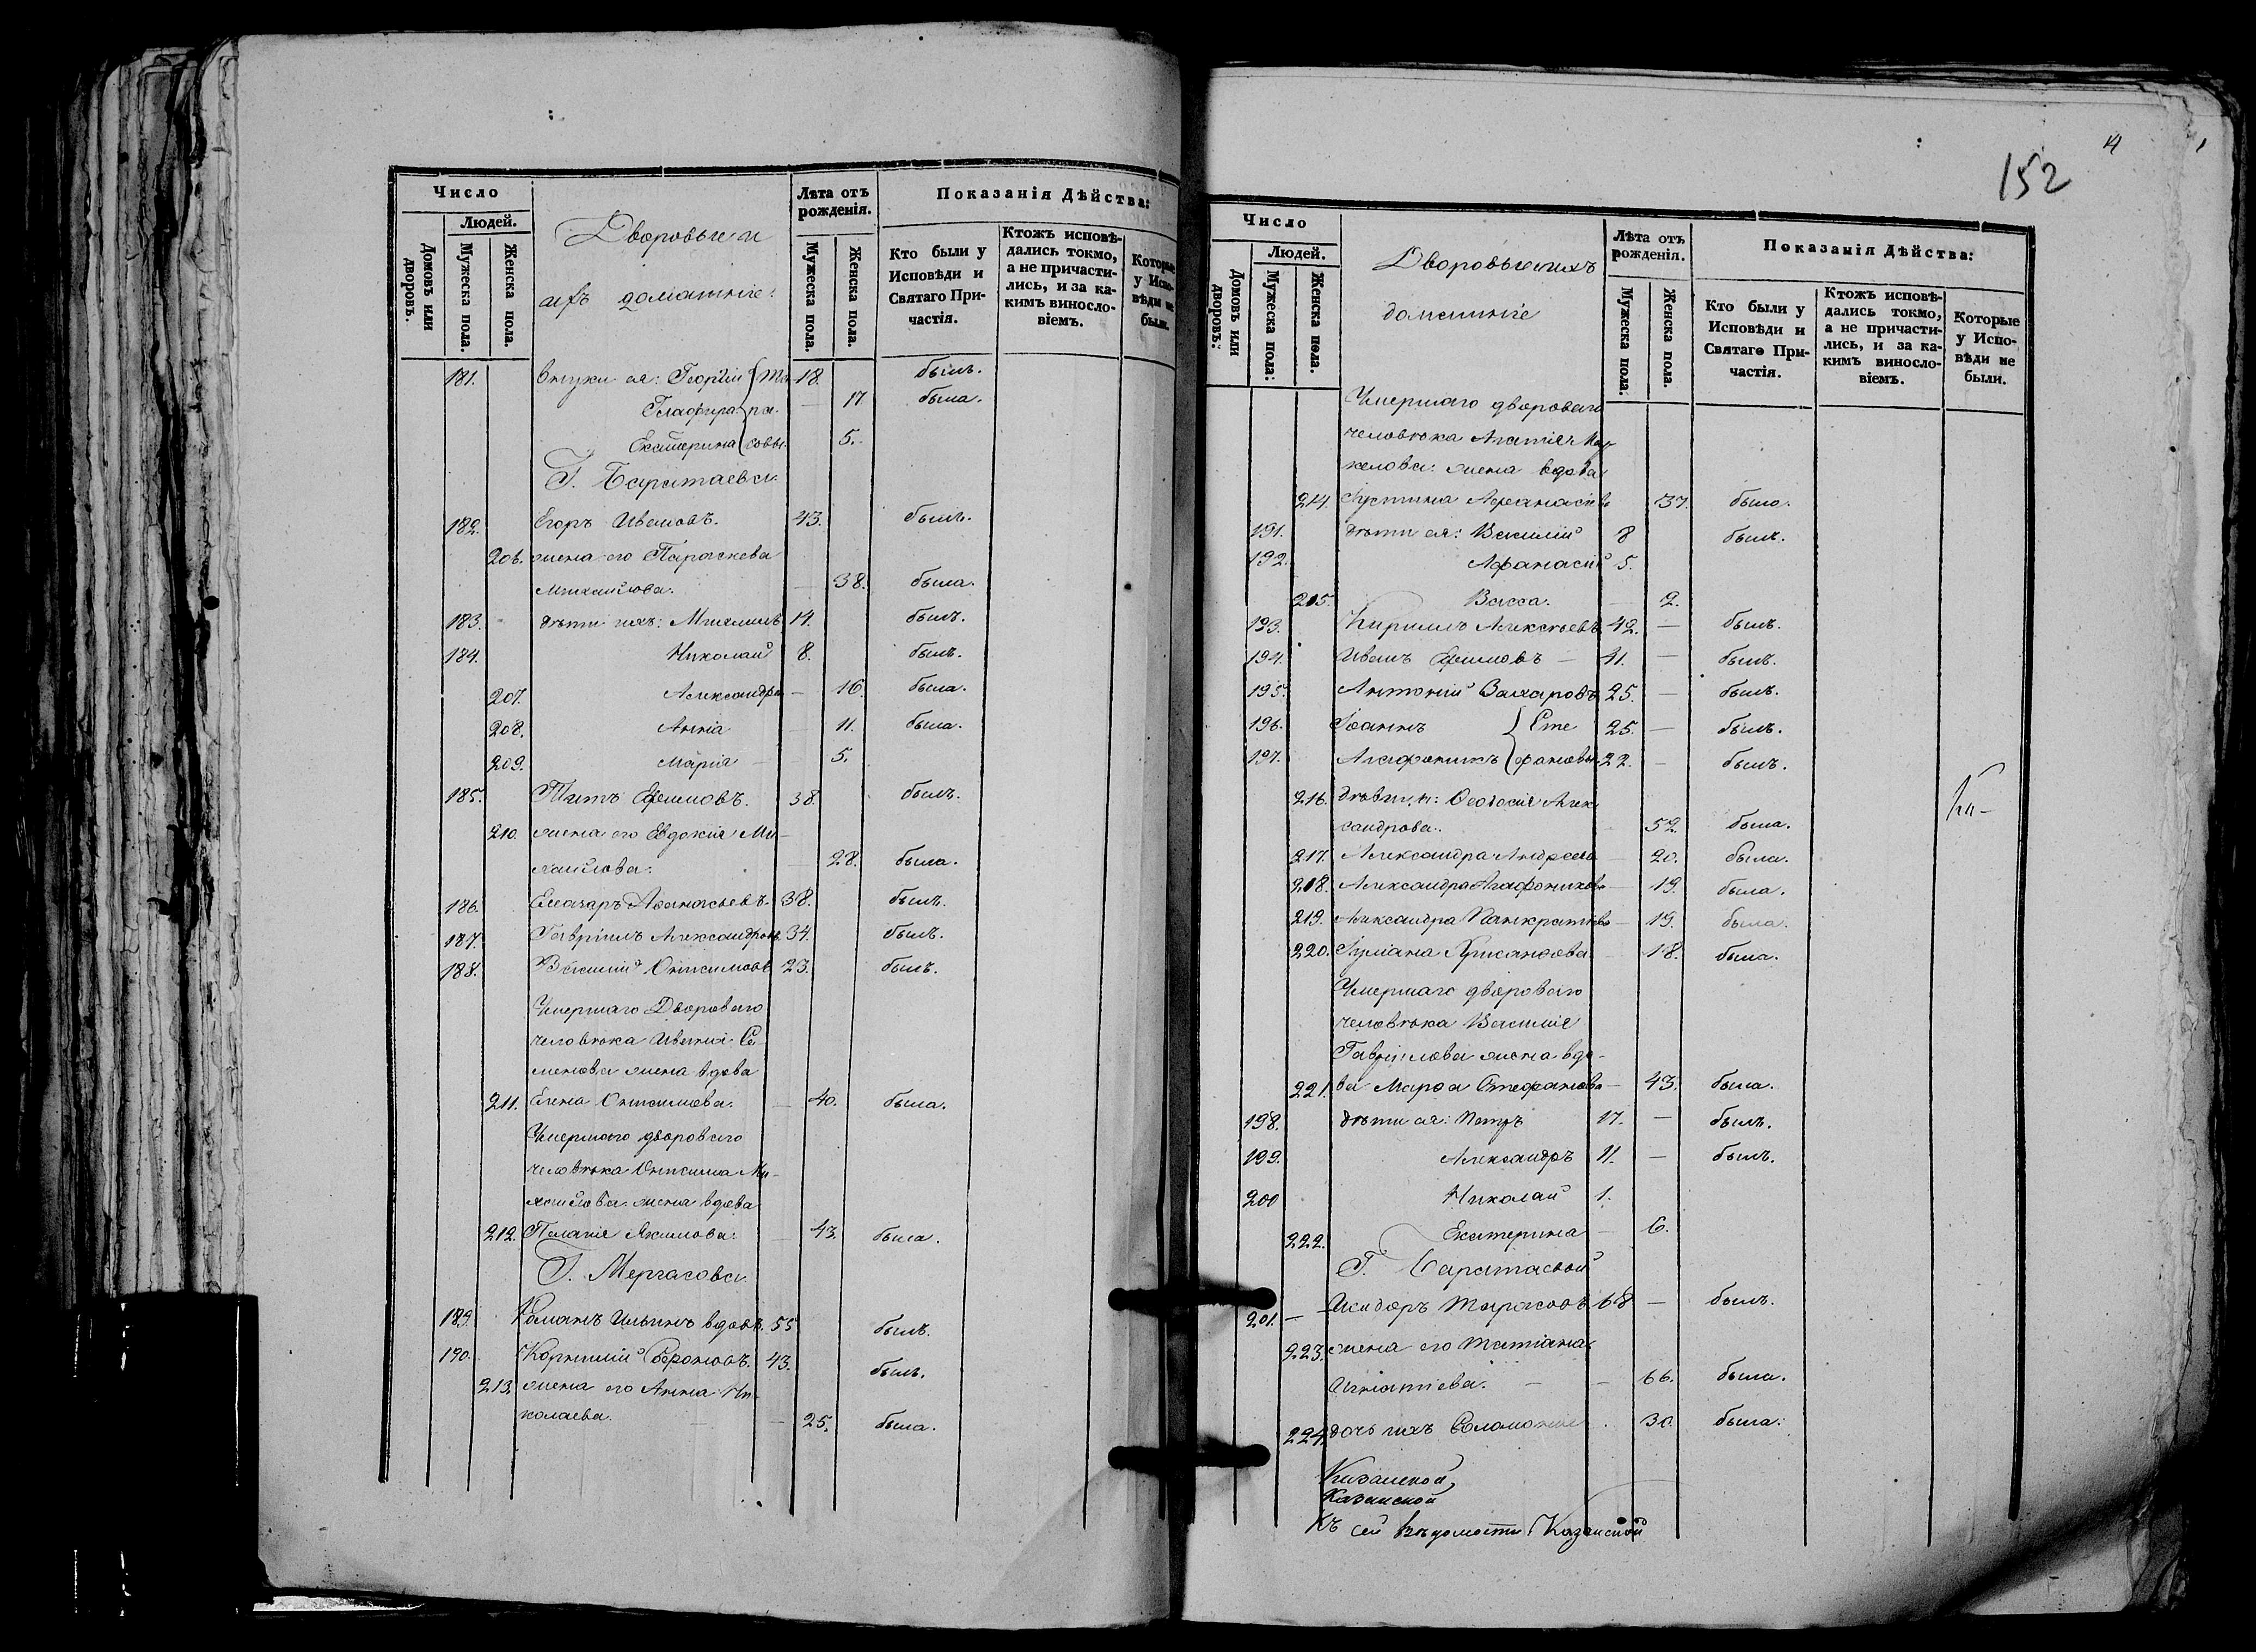 Число
Людей.
Домовъ или дворовъ.
Мужеска пола.
Женска пола.
Дворовые и
ихъ домашніе:
Лѣта отъ рожденія.
Мужеска пола.
Женска пола.
Показанія Дѣйства:
Кто были у Исповѣди и Святаго Причастія.
Ктожъ исповѣдались токмо, а не причастились, и за какимъ винословіемъ.
Которые у Исповѣди не были.
181. внуки ея: Георгій 18. былъ.
Глафира 17 была.
Екатерина 5.
Г. Баратаева
182. Егоръ Ивановъ. 43. былъ.
206. жена его Параскева
Михайлова. 38. была.
183. дѣти ихъ: Михаилъ 14. былъ.
184. Николай 8. былъ.
207. Александра 16. была.
208. Анна 11. была.
209. Марія 5.
185. Титъ Ефимовъ. 38. былъ.
210. жена его Евдокія Ми-
хайлова. 28. была.
186. Елеазаръ Афанасьевъ. 38. былъ.
187. Гавріилъ Александровъ. 34. былъ.
188. Василій Онисимовъ 23. былъ.
Умершаго Двороваго
человѣка Ивана Се-
менова жена вдова
211. Елена Онисимова. 40. была.
Умершаго двороваго
человѣка Онисима Ми-
хайлова жена вдова
212. Пелагія Акимова. 43. была.
Г. Мергасова
189. Романъ Ильинъ вдовъ. 55 былъ.
190. Корнилій Софроновъ. 43. былъ.
213. жена его Анна Ни-
колаева. 25. была.
152
Число
Людей.
Домовъ или дворовъ.
Мужеска пола.
Женска пола.
Дворовые и ихъ
домашніе
Лѣта отъ рожденія.
Мужеска пола.
Женска пола.
Показанія Дѣйства:
Кто были у Исповѣди и Святаго Причастія.
Ктожъ исповѣдались токмо, а не причастились, и за какимъ винословіемъ.
Которые у Исповѣди не были.
Умершаго двороваго
человѣка
жена вдова
214. Іустина Афанасіева 37. была.
191. дѣти ея: Василій 8 былъ.
192. Афанасій 5.
215. Васса. 2.
193. Кириллъ Алексѣевъ 42. былъ.
194. Иванъ Ефимовъ 41. былъ.
195. Антоній Захаровъ 25. былъ.
196. Іоаннъ { Сте 25. былъ.
197. Агафоникъ { фановы 22. былъ.
216. дѣвки: Феодосія Алек
сандрова. 52. была.
217. Александра Андреева 20. была.
218. Александра Агафоникова 19. была.
219. Александра Панкратова 19. была.
220. Іуліана Хрисанфова 18. была.
Умершаго двороваго
человѣка Василія
Гаврилова жена вдо-
221. ва Марфа Стефанова 43. была.
198. дѣти ея: Петръ 17. былъ.
199. Александръ 11. былъ.
200 Николай 1.
222. Екатерина 6.
Г. Баратаевой
201. Исидоръ Тарасовъ 68 былъ.
223. жена его Татіана
Игнатіева. 66. была.
224. дочь ихъ Соломонія 30. была.
Казанской
Казанской
Къ сей вѣдомости Казанской